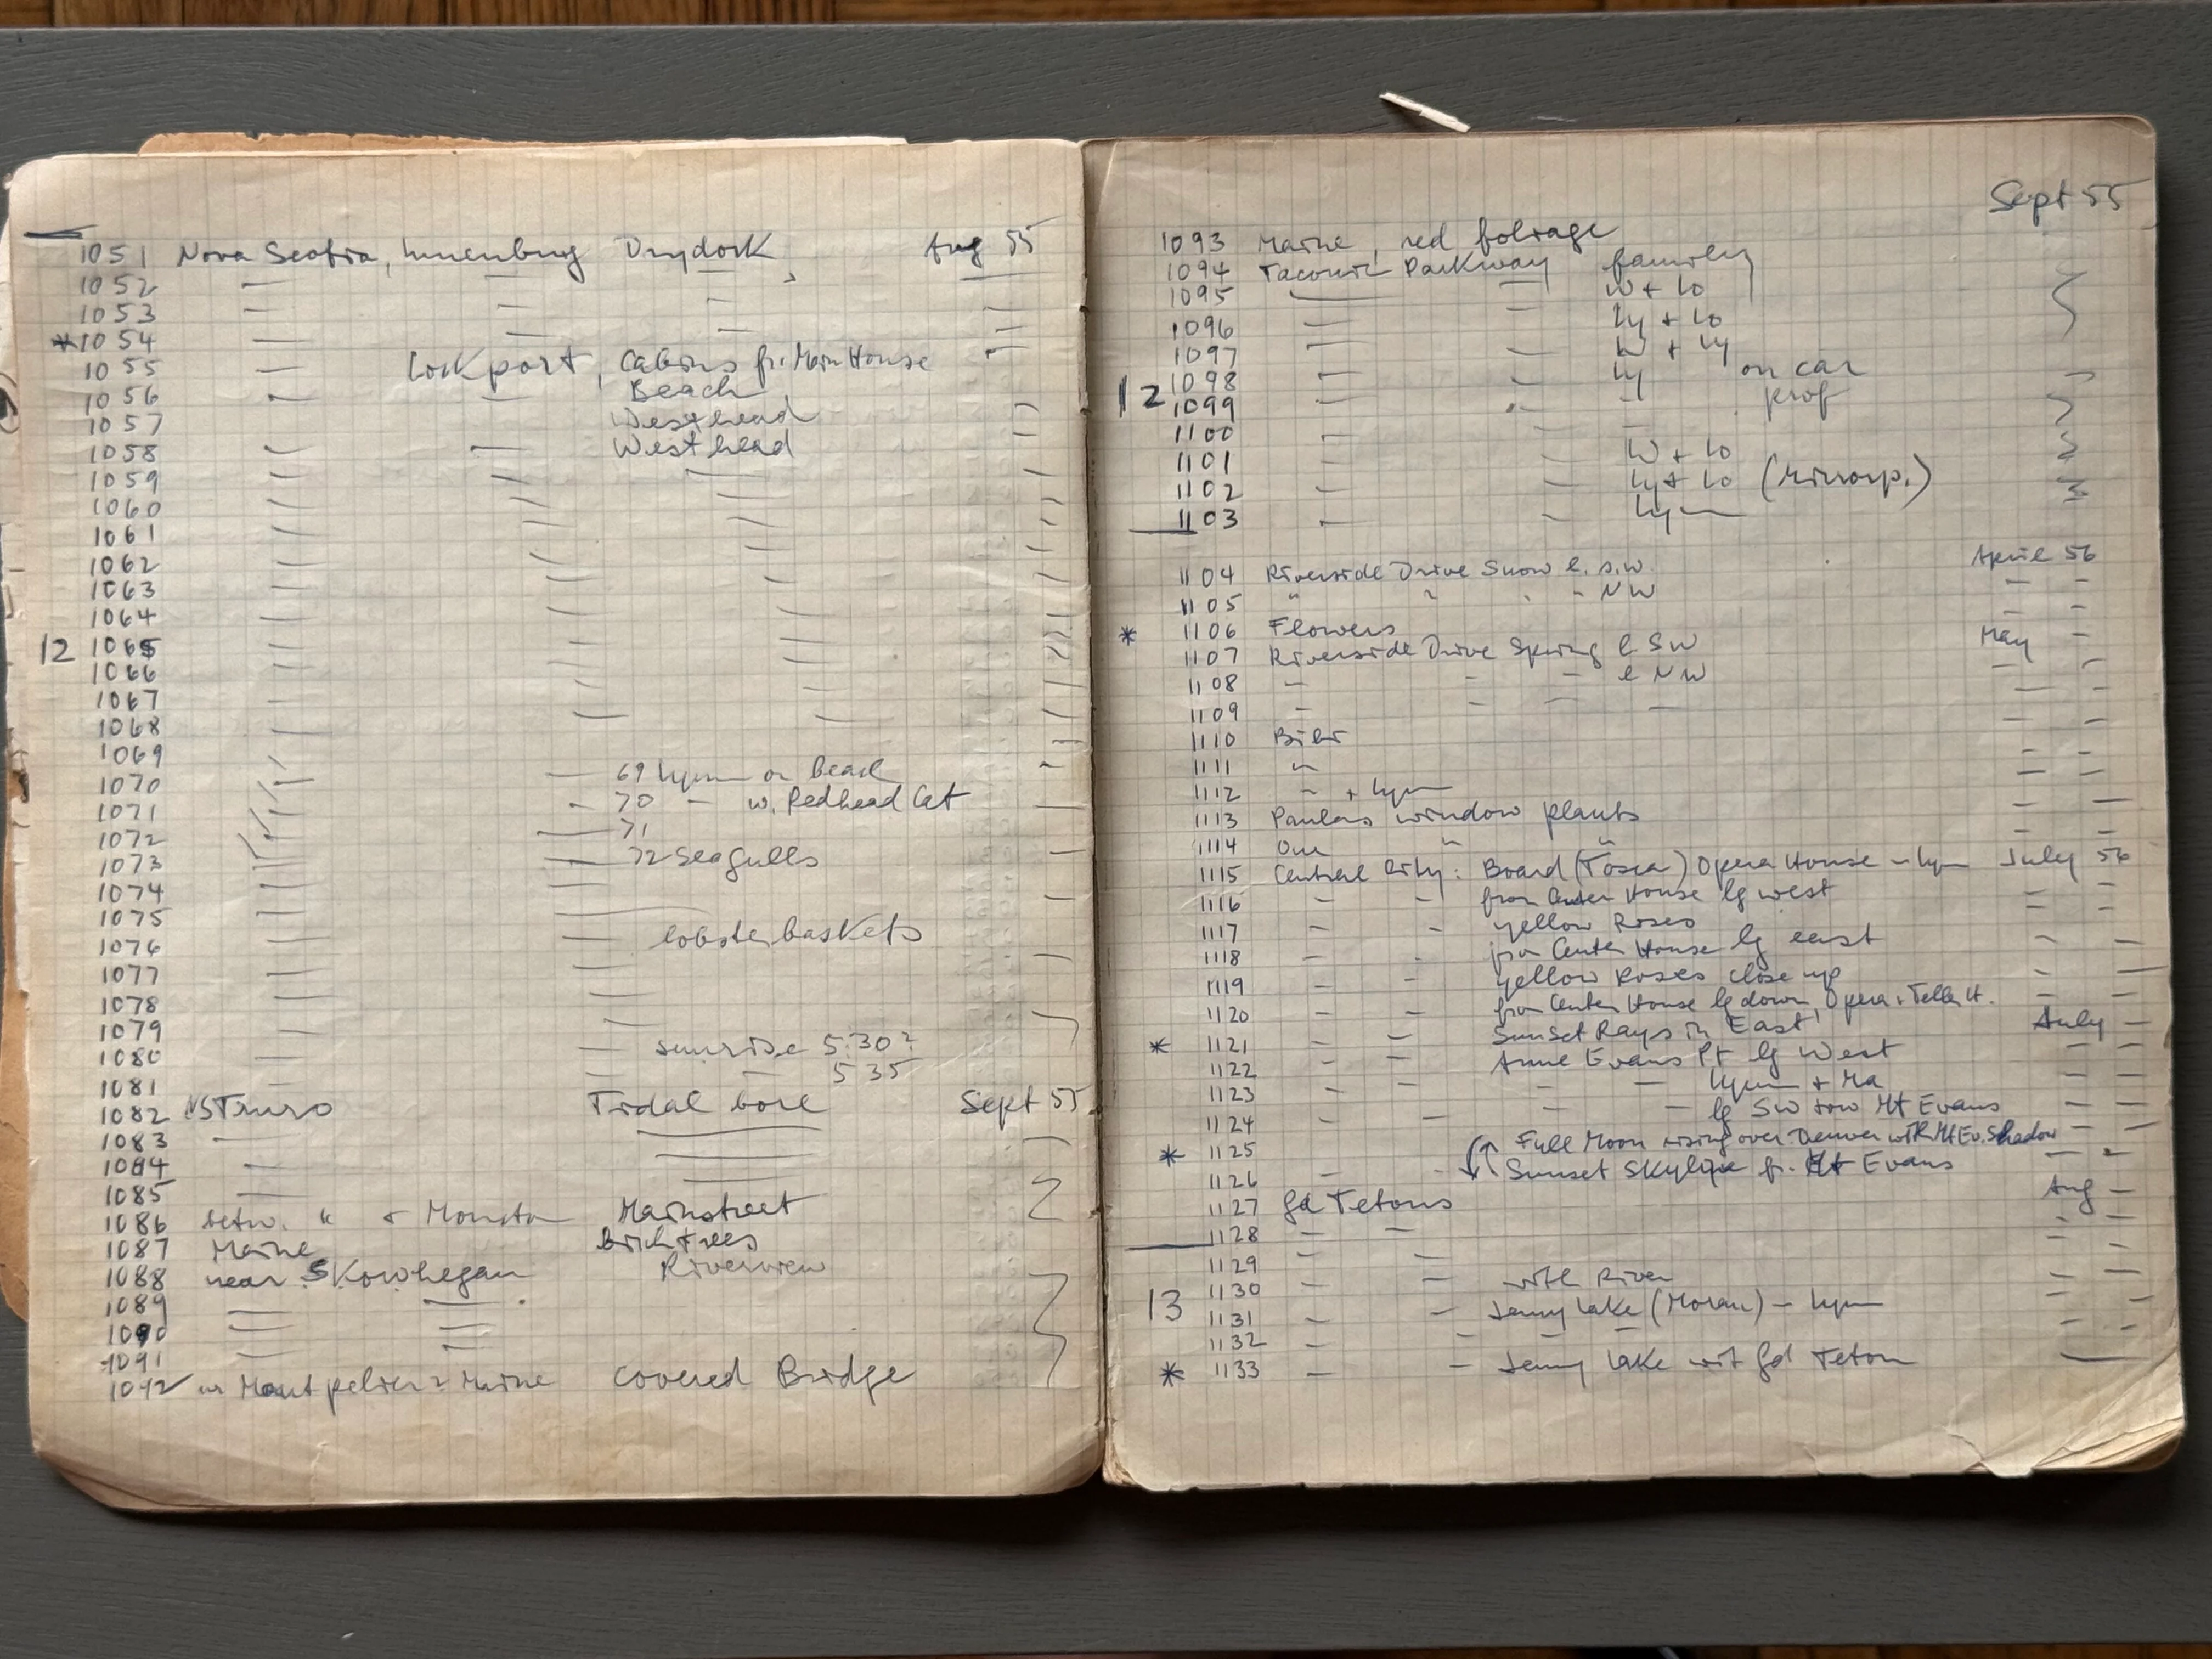 1051 Nova Scotia, Lunenburg Drydock, Aug 55
1052 — — — —
1053 — — — —
*1054 — — — —
1055 — Lockport, Cabins fr. Main House
1056 — — Beach
1057 Westhead —
1058 — — Westhead —
1059 — — — —
1060 — — — —
1061 — — — —
1062 — — — —
1063 — — — —
1064 — — — —
12 1065 — — — —
1066 — — — —
1067 — — — —
1068 — — — —
1069 —
1070 — — 69 Lynn on beach —
1071 — — 70 — w. Redhead Cat
1072 — — 71
1073 — — 72 Seagulls
1074 — —
1075 — —
1076 — — lobsterbaskets
1077 — —
1078 — —
1079 — —
1080 — — sunrise 5.30?
1081 — — — 5 35
1082 NS Truro Tidal bore Sept 55
1083 — —
1084 — —
1085 — —
1086 betw. " + Moncton Mainstreet
1087 Maine birchtrees
1088 near Skowhegan Riverview
1089 — —
1090 — —
1091 — —
1092 Montpelier? Maine Covered Bridge
Sept 55
1093 Maine, red foliage
1094 Taconic Parkway family
1095 — — W + Lo
1096 — — Ly + Lo
1097 — — W + Ly
12 1098 — — Ly on car
1099 — — — prof
1100 — —
1101 — — W + Lo
1102 — — Ly + Lo
1103 — — Ly —
1104 Riverside Drive Snow l. s.w. April 56
1105 " " " – NW — —
* 1106 Flowers — —
1107 Riverside Drive Spring l SW May —
1108 — — — l NW — —
1109 — — — — — —
1110
1111 " — —
1112 " + Lynn — —
1113 Paulas window plants — —
1114 Our " " — —
1115 Central City: Board (Tosca) Opera House – Lyn July 56
1116 — — from Center House lg west — —
1117 — — yellow Roses — —
1118 — — from Center House lg east — —
1119 — — yellow Roses close up — —
1120 — — from Center House lg down, Opera + Teller H. — —
* 1121 — — Sunset Rays in East July —
1122 — — Anne Evans Pt lg West — —
1123 — — — — Lynn + Ma — —
1124 — — — — lg SW tow Mt Evans — —
* 1125 Full Moon rising over Denver with Mt Ev. Shadow
1126 — — Sunset Skyline fr. Mt Evans — —
1127 Gd Tetons Aug —
1128 — — — —
1129 — — — —
1130 — — with River — —
13 1131 — — Jenny Lake (Moran) – Lynn — —
1132 — — — — —
* 1133 — — Jenny Lake wit Gd Teton —